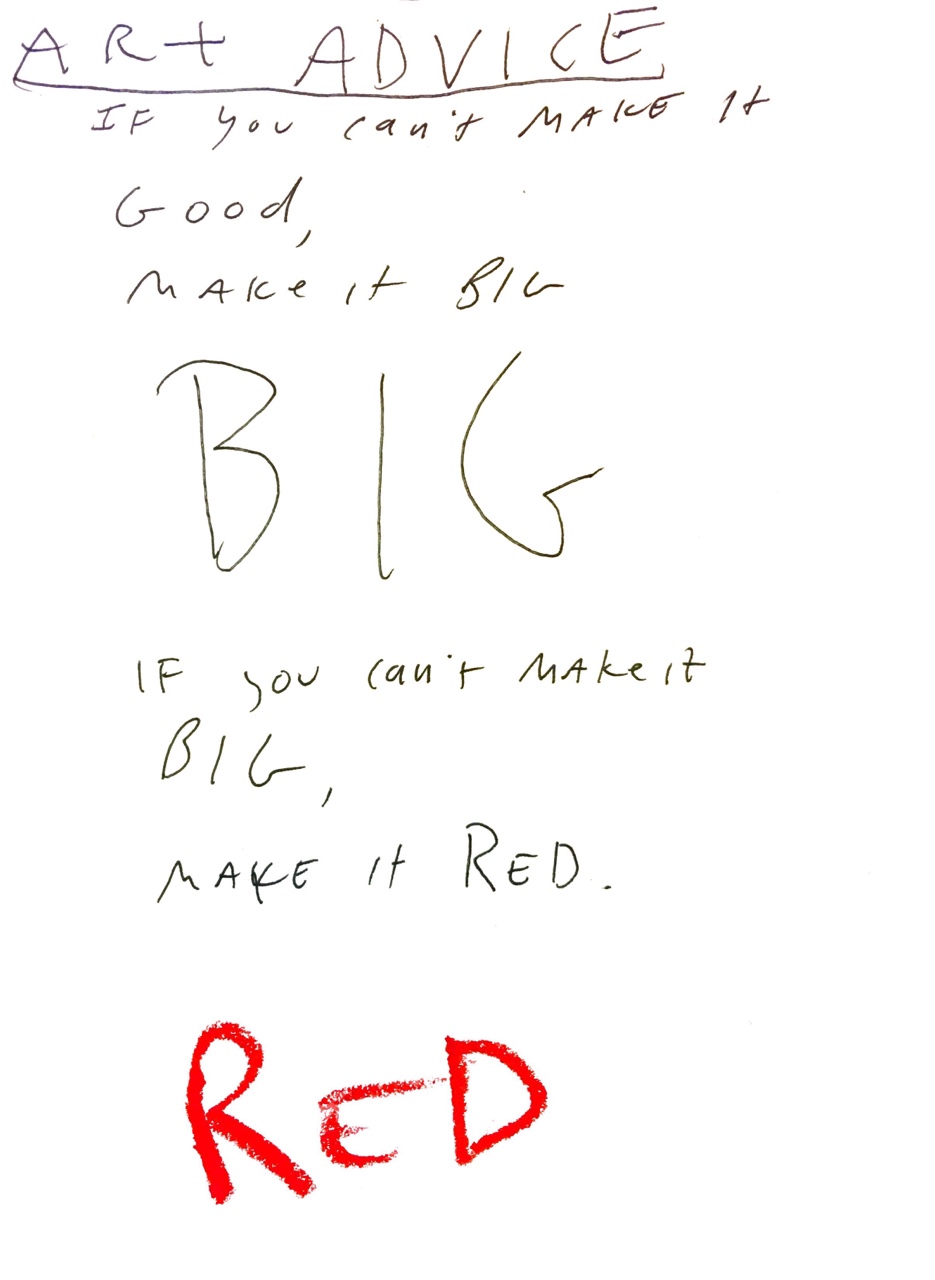 ART ADVICE
IF you can't MAKE It
Good,
MAKe it BIG
BIG
IF you can't MAKe it
BIG,
MAKE It RED.
RED